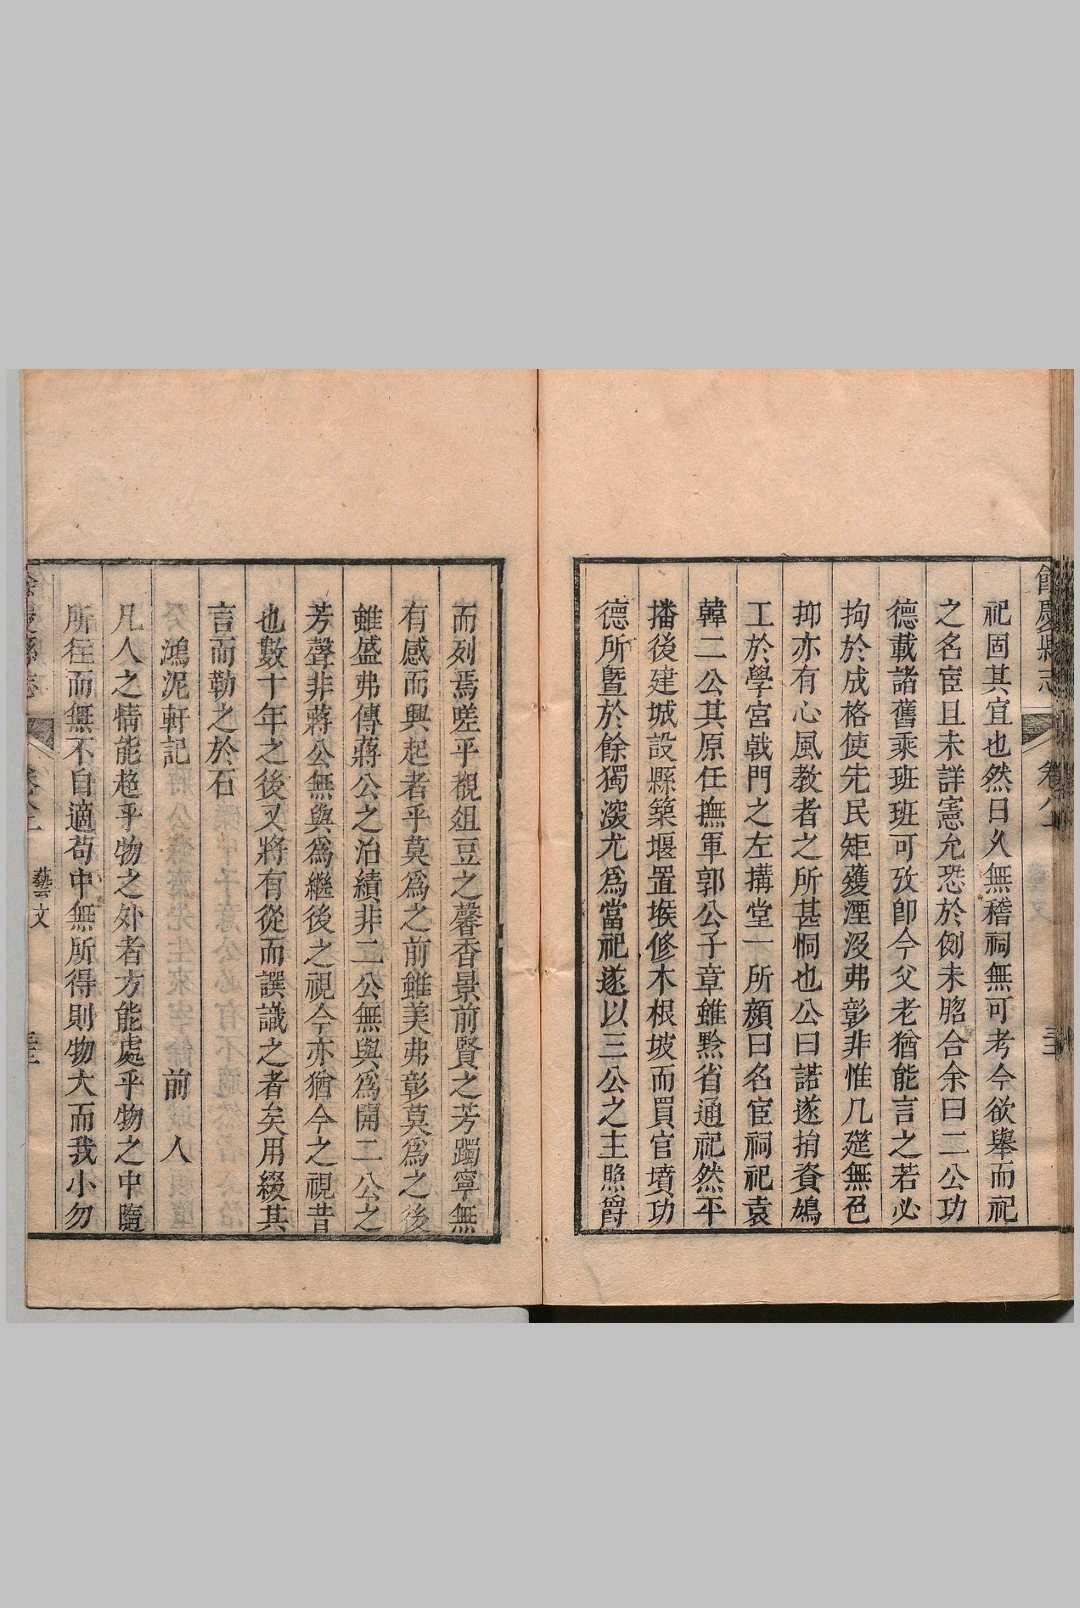 餘慶縣志
卷八上
祀固其宜也然日久無稽祠無可考今欲舉而祀
之名宦且未詳憲允恐於例未脗合余曰二公功
德載諸舊乘班班可攷卽今父老猶能言之若必
拘於成格使先民矩矱湮沒弗彰非惟几筵無色
抑亦有心風教者之所甚恫也公曰諾遂捐資鳩
工於學宮戟門之左搆堂一所顏曰名宦祠祀袁
韓二公其原任撫軍郭公子章雖黔省通祀然平
播後建城設縣築堰置堠修木根坡而買官墳功
德所曁於餘獨深尤爲當祀遂以三公之主照爵
而列焉嗟乎覩俎豆之馨香景前賢之芳躅寧無
有感而興起者乎莫爲之前雖美弗彰莫爲之後
雖盛弗傳蔣公之治績非二公無與爲開二公之
芳聲非蔣公無與爲繼後之視今亦猶今之視昔
也數十年之後又將有從而譔識之者矣用綴其
言而勒之於石
鴻泥軒記 前人
凡人之情能超乎物之外者方能處乎物之中隨
所往而無不自適苟中無所得則物大而我小勿
餘慶縣志
藝文